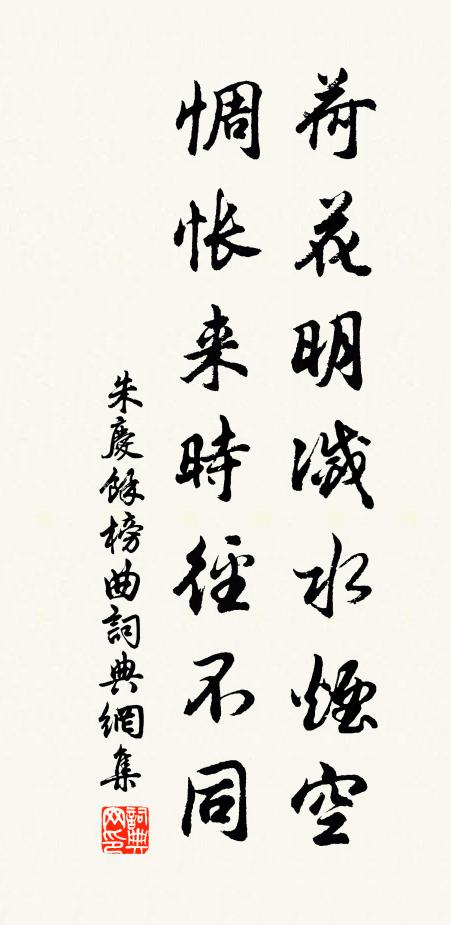 荷花明滅水煙空
惆悵来時徑不同
朱慶餘榜曲詞典網集
詞典网印